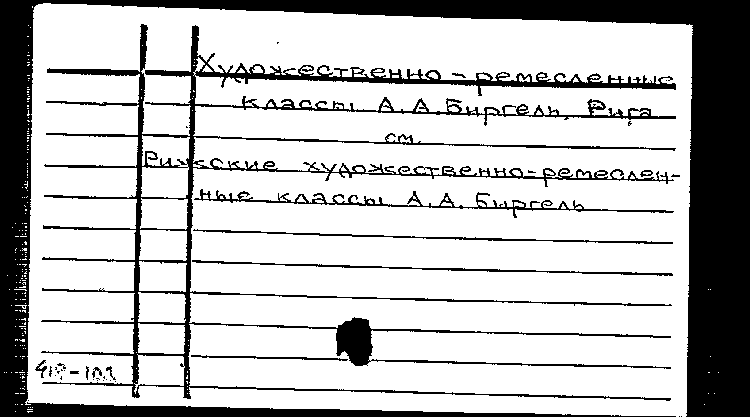 Художественно-ремесленные
классы А.А.Биргель, Рига
см.
Рижские художественно-ремеслен-
ные классы А.А.Биргель